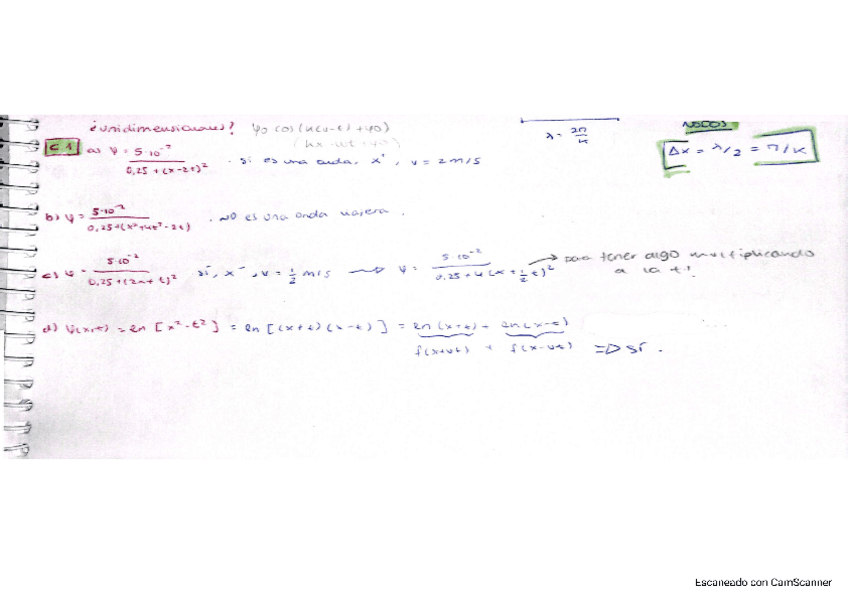 ¿unidimensionales? φ0 cos(k(x-t)+φ0)
(kx-wt+φ0)
λ = 2π/k
NODOS
Δx = λ/2 = π/k
C.1 a) Ψ = 5·10⁻² / 0,25 + (x-2t)² · sí es una onda, x⁺, v = 2m/s
b) Ψ = 5·10⁻² / 0,25+(x²+4t²-2t) · NO es una onda viajera.
c) Ψ = 5·10⁻² / 0,25+(2x+t)² sí, x⁻, v = 1/2 m/s → Ψ = 5·10⁻² / 0,25+4(x+1/2 t)² → para tener algo multiplicando
a la t!
d) Ψ(x,t) = ln [x²-t²] = ln [(x+t)(x-t)] = ln(x+t) + ln(x-t)
f(x+vt) + f(x-vt) ⇒ sí.
Escaneado con CamScanner